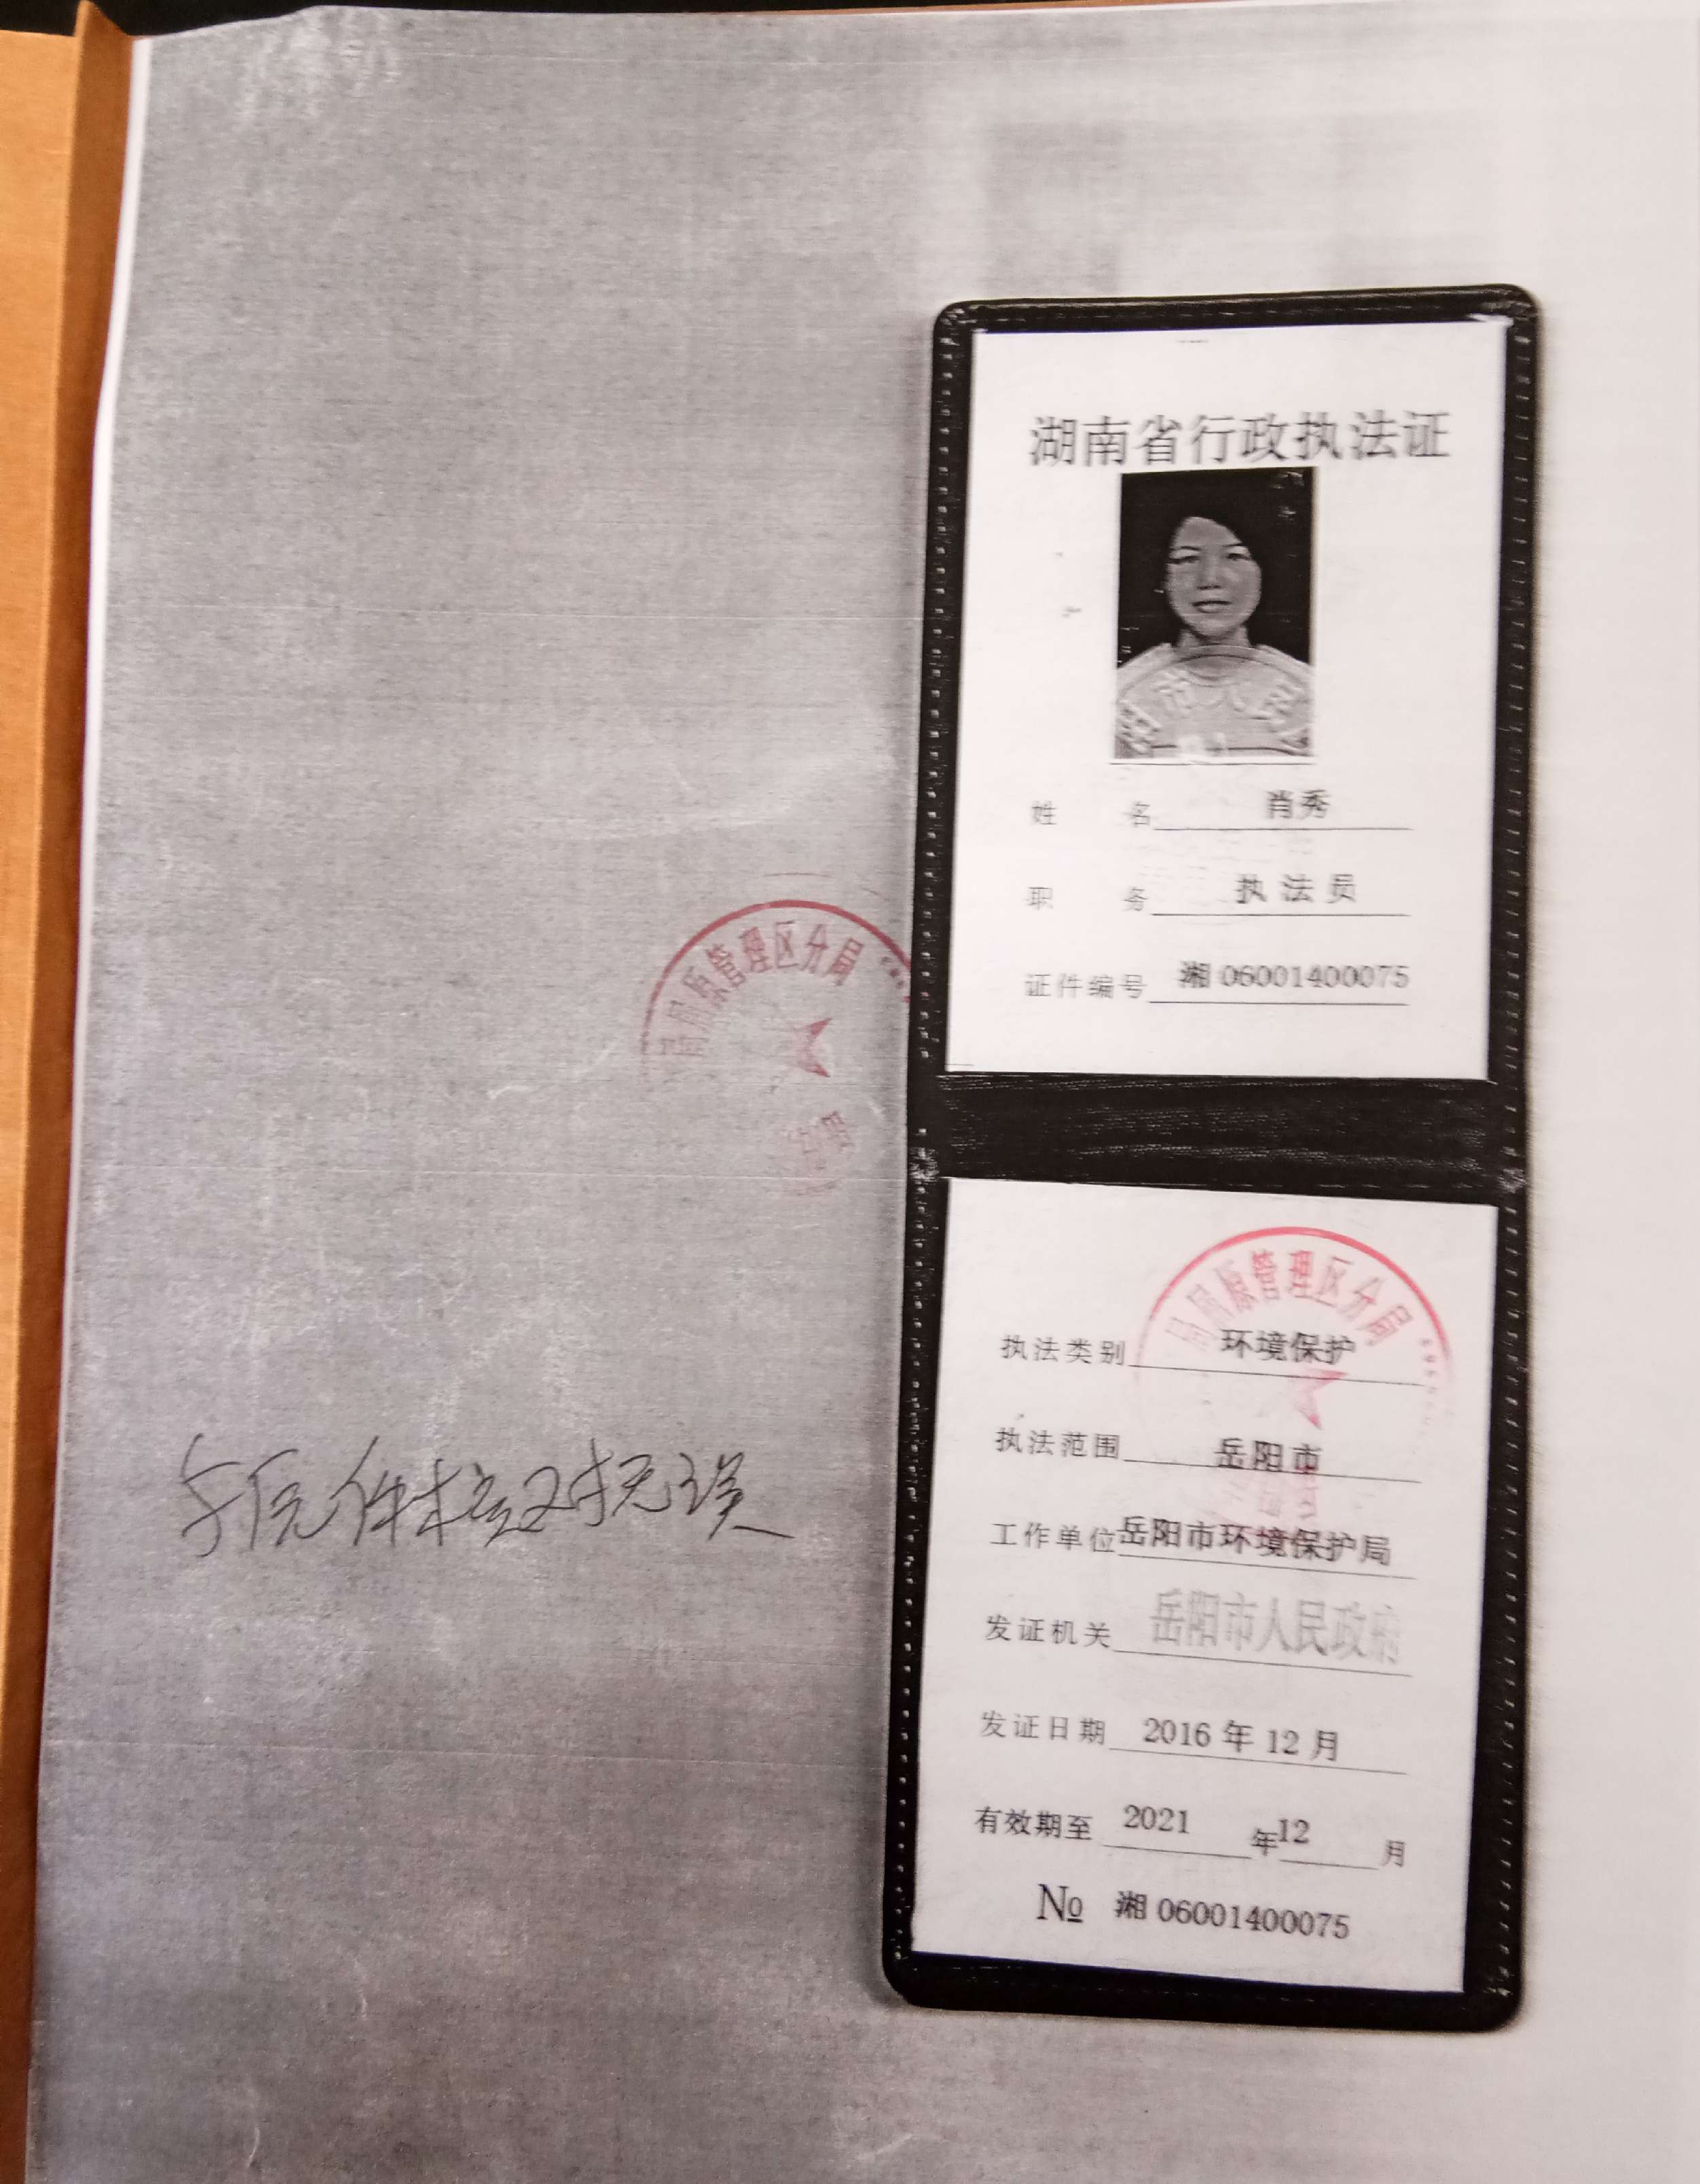 湖南省行政执法证
市人民
姓名 肖秀
职务 执法员
证件编号 湘 06001400075
屈原管理区分局
屈原管理区分局
执法类别 环境保护
执法范围 岳阳市
工作单位 岳阳市环境保护局
发证机关 岳阳市人民政府
发证日期 2016 年 12 月
有效期至 2021 年 12 月
№ 湘 06001400075
与原件核对无误